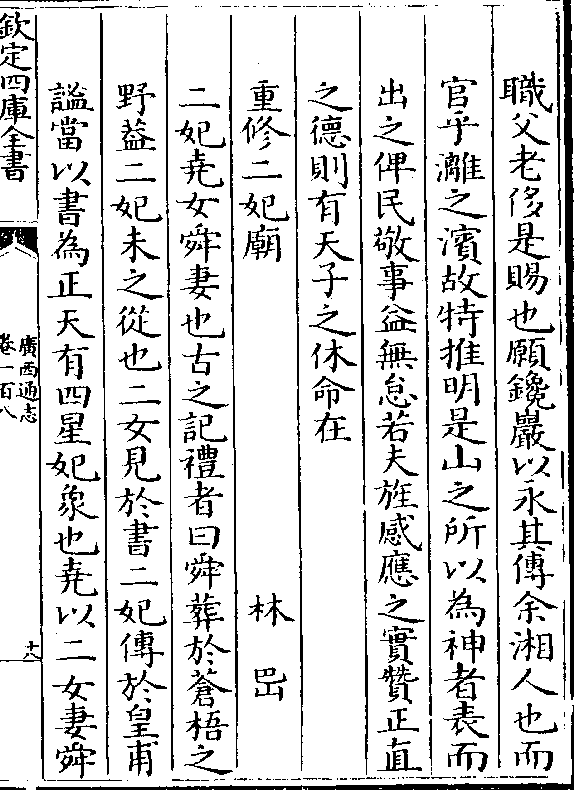 職父老侈是賜也願鑱巖以永其傳余湘人也而
官乎灕之濱故特推明是山之所以為神者表而
出之俾民敬事益無怠若夫旌感應之實贊正直
之德則有天子之休命在
重修二妃廟 林岊
二妃堯女舜妻也古之記禮者曰舜葬於蒼梧之
野蓋二妃未之從也二女見於書二妃傳於皇甫
謐當以書為正天有四星妃象也堯以二女妻舜
欽定四庫全書
廣西通志
卷一百八
十八